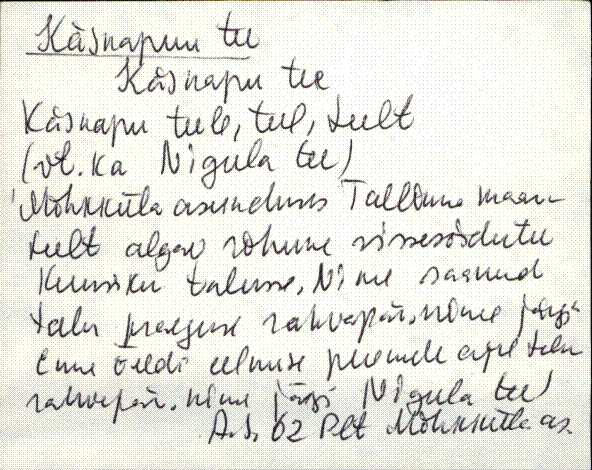 Käsnapuu tee
Käsnapu tee
Käsnapu teele, teel, teelt
(vt. ka Nigula tee)
Mõhkküla asunduses Tallinna maan-
teelt algav rohune sissesõidutee
Kuusiku talusse. Nime saanud
talu praeguse rahvapär. nime järgi
Enne öeldi eelmise peremehe aegse talu
rahvapär. nime järgi Nigula tee)
62 Plt Mõhkküla as.